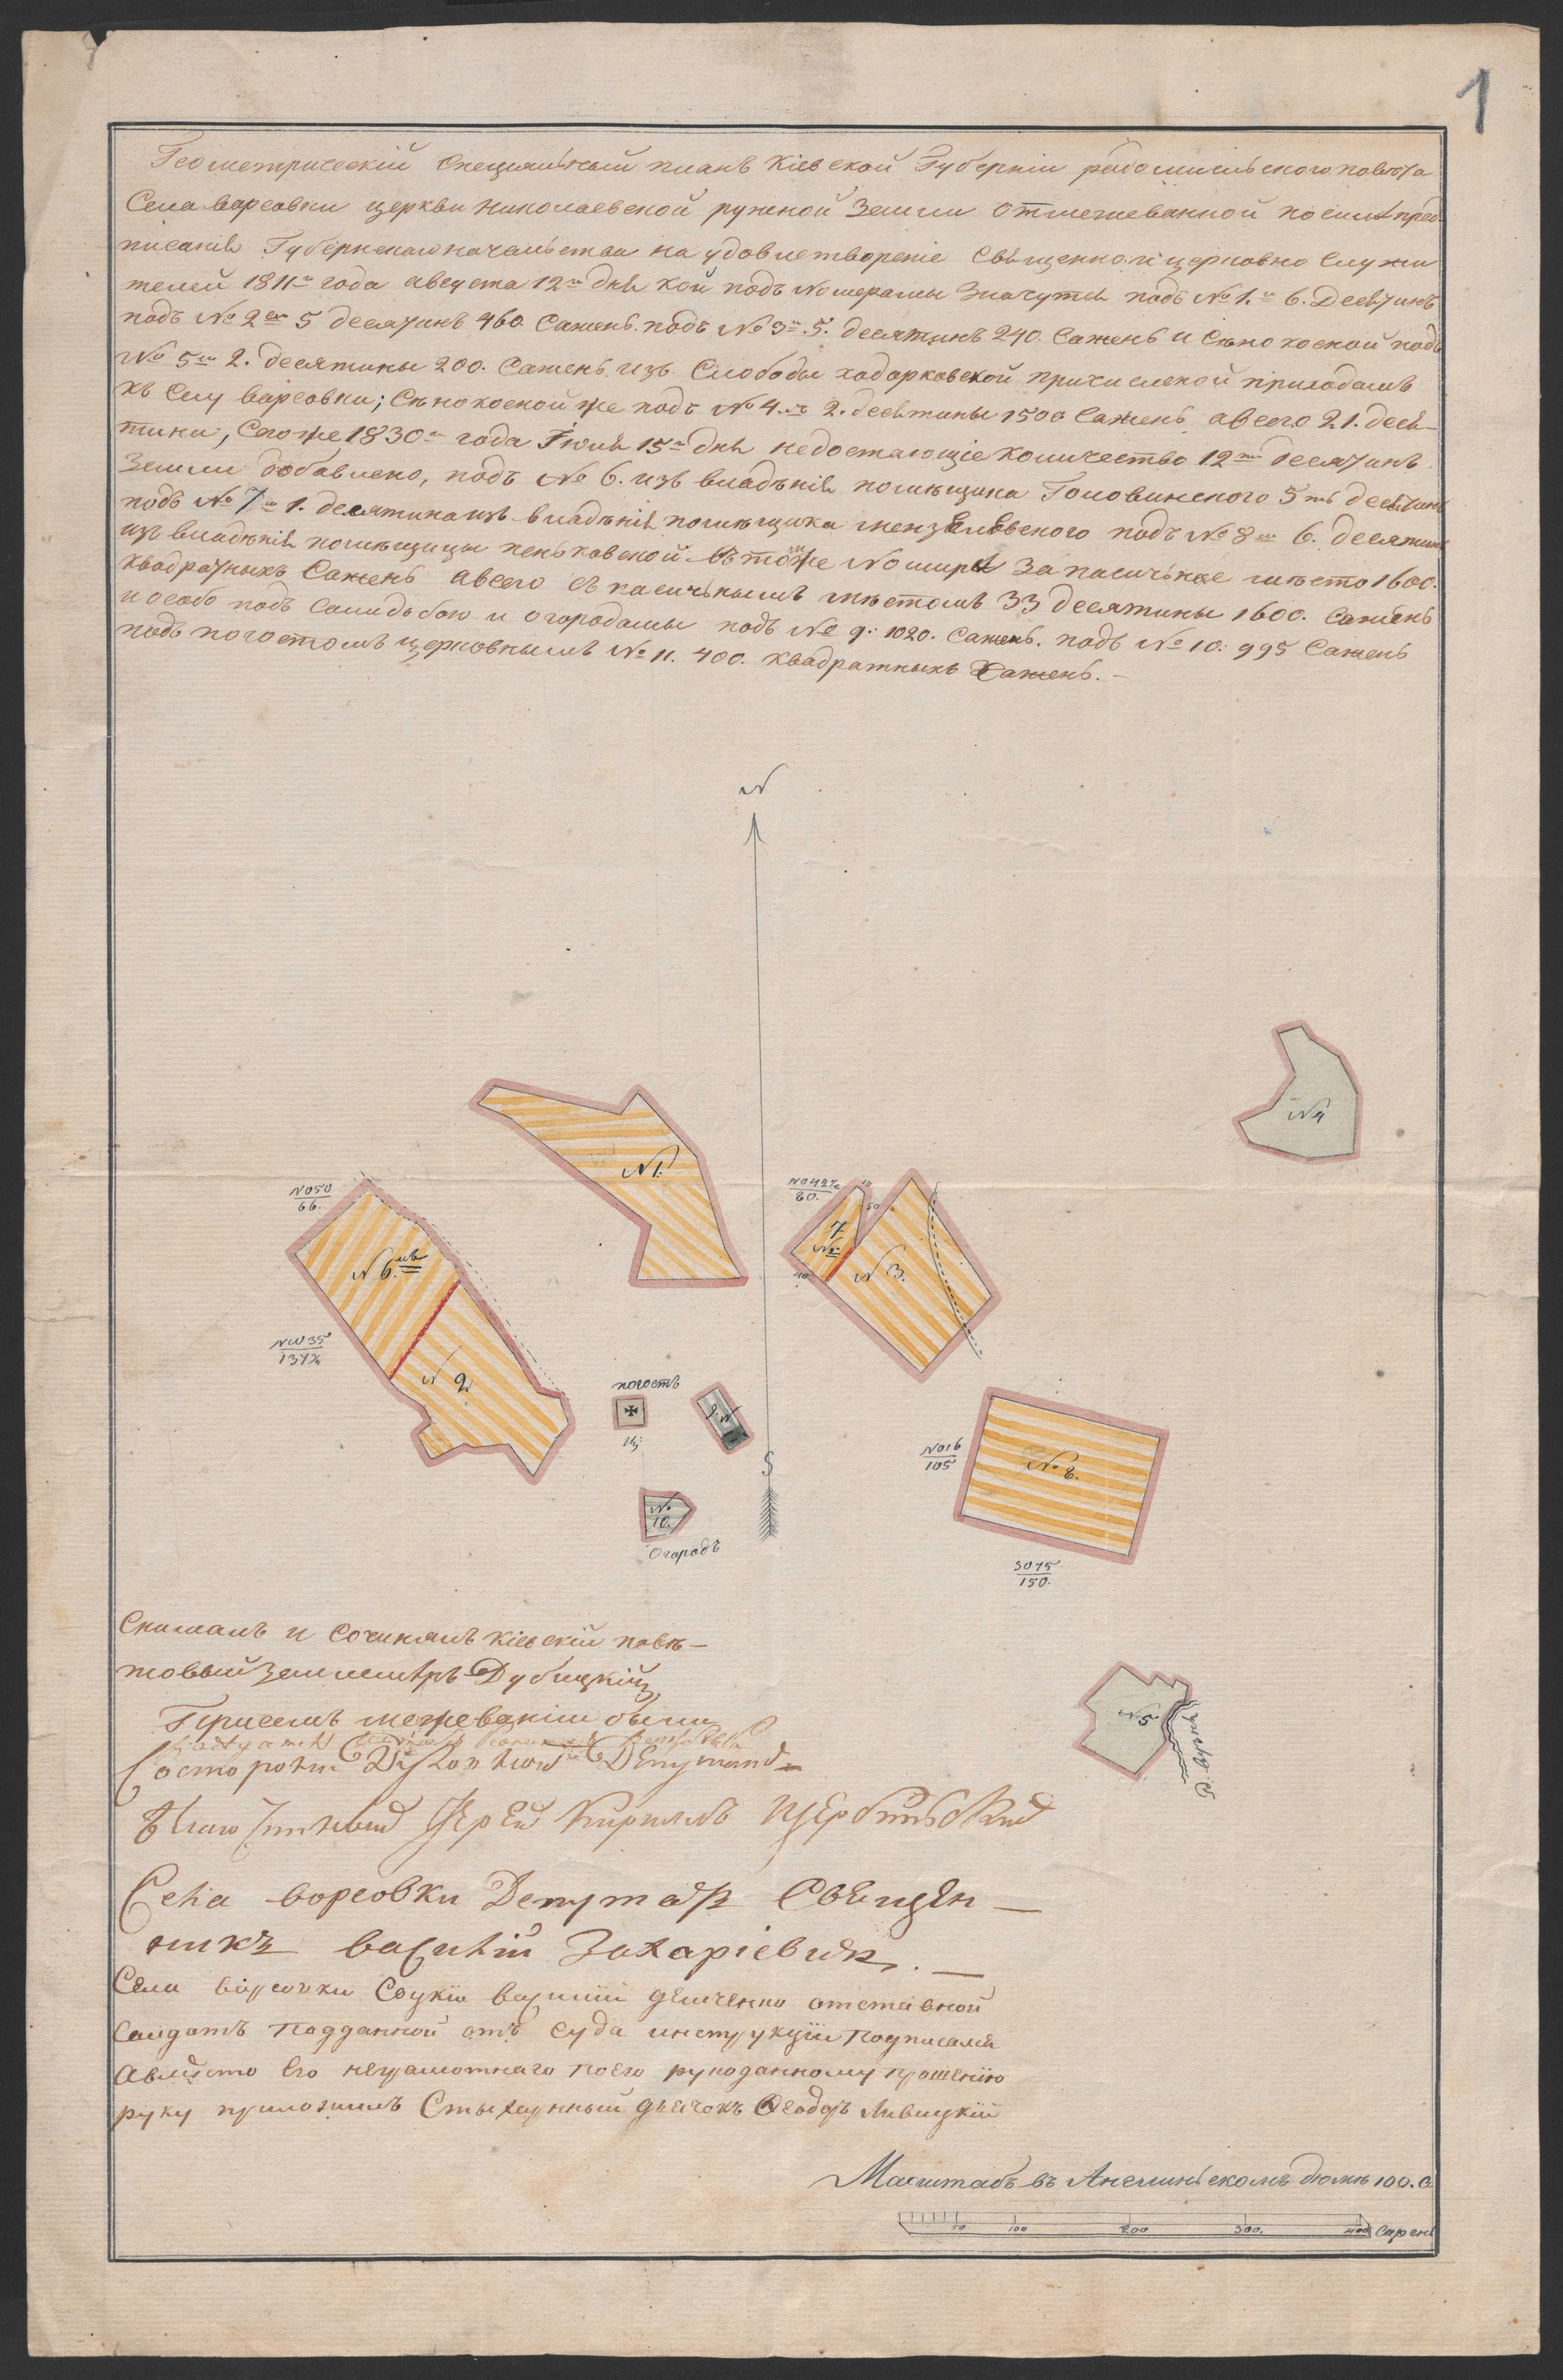 1
Геометрическій специяльный планъ Кіевской Губерніи радомисльского повѣта
Села варсовки церкви Николаевской ружной Земли отмежеванной по силѣ пред
писанія Губернскаго начальства на удовлетвореніе Священно и церковно Служи
телей 1811го года августа 12го дня кои подъ Номерамы Значутся подъ № 1.м 6. Десятинъ
подъ № 2ом 5 десятинъ 460. Сажень. подъ № 3м. 5. десятинъ 240. Сажень и Сѣнокоской подъ
№ 5м 2. десятины 200. Сажень изъ Слободы ходорковской причисленой приходомъ
къ Селу варсовки; Сѣнокоской же подъ № 4.мъ 2. десятины 1500 Сажень авсего 21. деся-
тина, Сегоже 1830го года Іюля 15го дня недостающіе Количество 12ть десятинъ
Земли добавлено, подъ № 6. изъ владѣнія помѣщика Головинского 5ть десятинъ
подъ № 7м 1. десятина изъ владѣнія помѣщика подъ № 8м 6. десятинъ
изъ владѣнія помѣщицы пеньковской вътомже Номирѣ За пасичьное мѣсто 1600.
Квадратныхъ Сажень авсего съ пасичьнымъ мѣстомъ 33 десятины 1600. Сажень
и особо подъ Салидьбою и огородамы подъ № 9: 1020. Сажень. подъ № 10: 995 Сажень
подъ погостомъ церковнымъ № 11. 400. квадратныхъ Сажень. –
N
N 4
N 1.
NO50
66.
NO42½
80.
10
50
7
№
10
N 3.
N 6.мъ
NW35
137½
N 2
погостъ
Ц:
9. N
S
NO16
105
№ 8.
№
10.
Огородъ
SO75
150.
N 5
Р. Ирпень
Снималъ и Сочинялъ Кіевскій повѣ-
товый Землемѣръ Дубицкій
Присемъ межеваніи были
Состороны Духовной Депутатъ
Благочинный Іерей Кириллъ Щербинскій
Села ворсовки Депутатъ Священ-
никъ василій Захаріевичъ. –
Села варсовки Соцкій василій демченко отставной
Солдатъ подданной отъ Суда инструкціи подписался
авмѣсто Его неграмотнаго поего рукоданному прошенію
руку приложилъ Стыхарнный дьячокъ Феодоръ Левицкій
Масштабъ въ Англиньскомъ дюймѣ 100. С
50 100 200 300. 400 Сажень